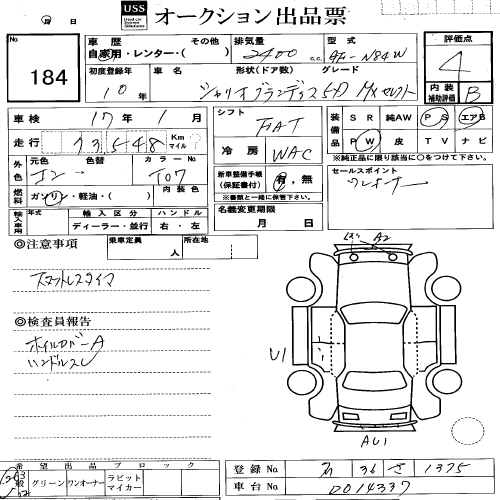 USS オークション出品票
月 日
No. 184
車歴 その他
自家用・レンター・( )
排気量 2400 c.c.
型式 GF-N84W
評価点 4
初度登録年 10年
車名 形状(ドア数) グレード
シャリオグランディス 5D MXセレクト
内装補助評価 B
車検 17年 1月
走行 73548 Km マイル
シフト FAT
冷房 WAC
装備品 SR 純AW PS エアB
PW 皮 TV ナビ
※純正品に限り該当に○をつけて下さい。
外色 元色 色替 カラーNo
T07
燃料 ガソリン・軽油・( ) 内装色
新車整備手帳(保証書付) 有・無
※書類と一緒に保管下さい。
セールスポイント
ワンオーナー
輸入車用 年式 輸入区分 ハンドル
ディーラー・並行 右・左
名義変更期限 月 日
◎注意事項
乗車定員 人 所在地
スタットレスタイヤ
◎検査員報告
ホイルカバーA
ハンドルスレ
A2
U1
AU1
希望出品ブロック
グリーン ワンオーナー ラビットマイカー
登録No 36 さ 1375
車台No D014337